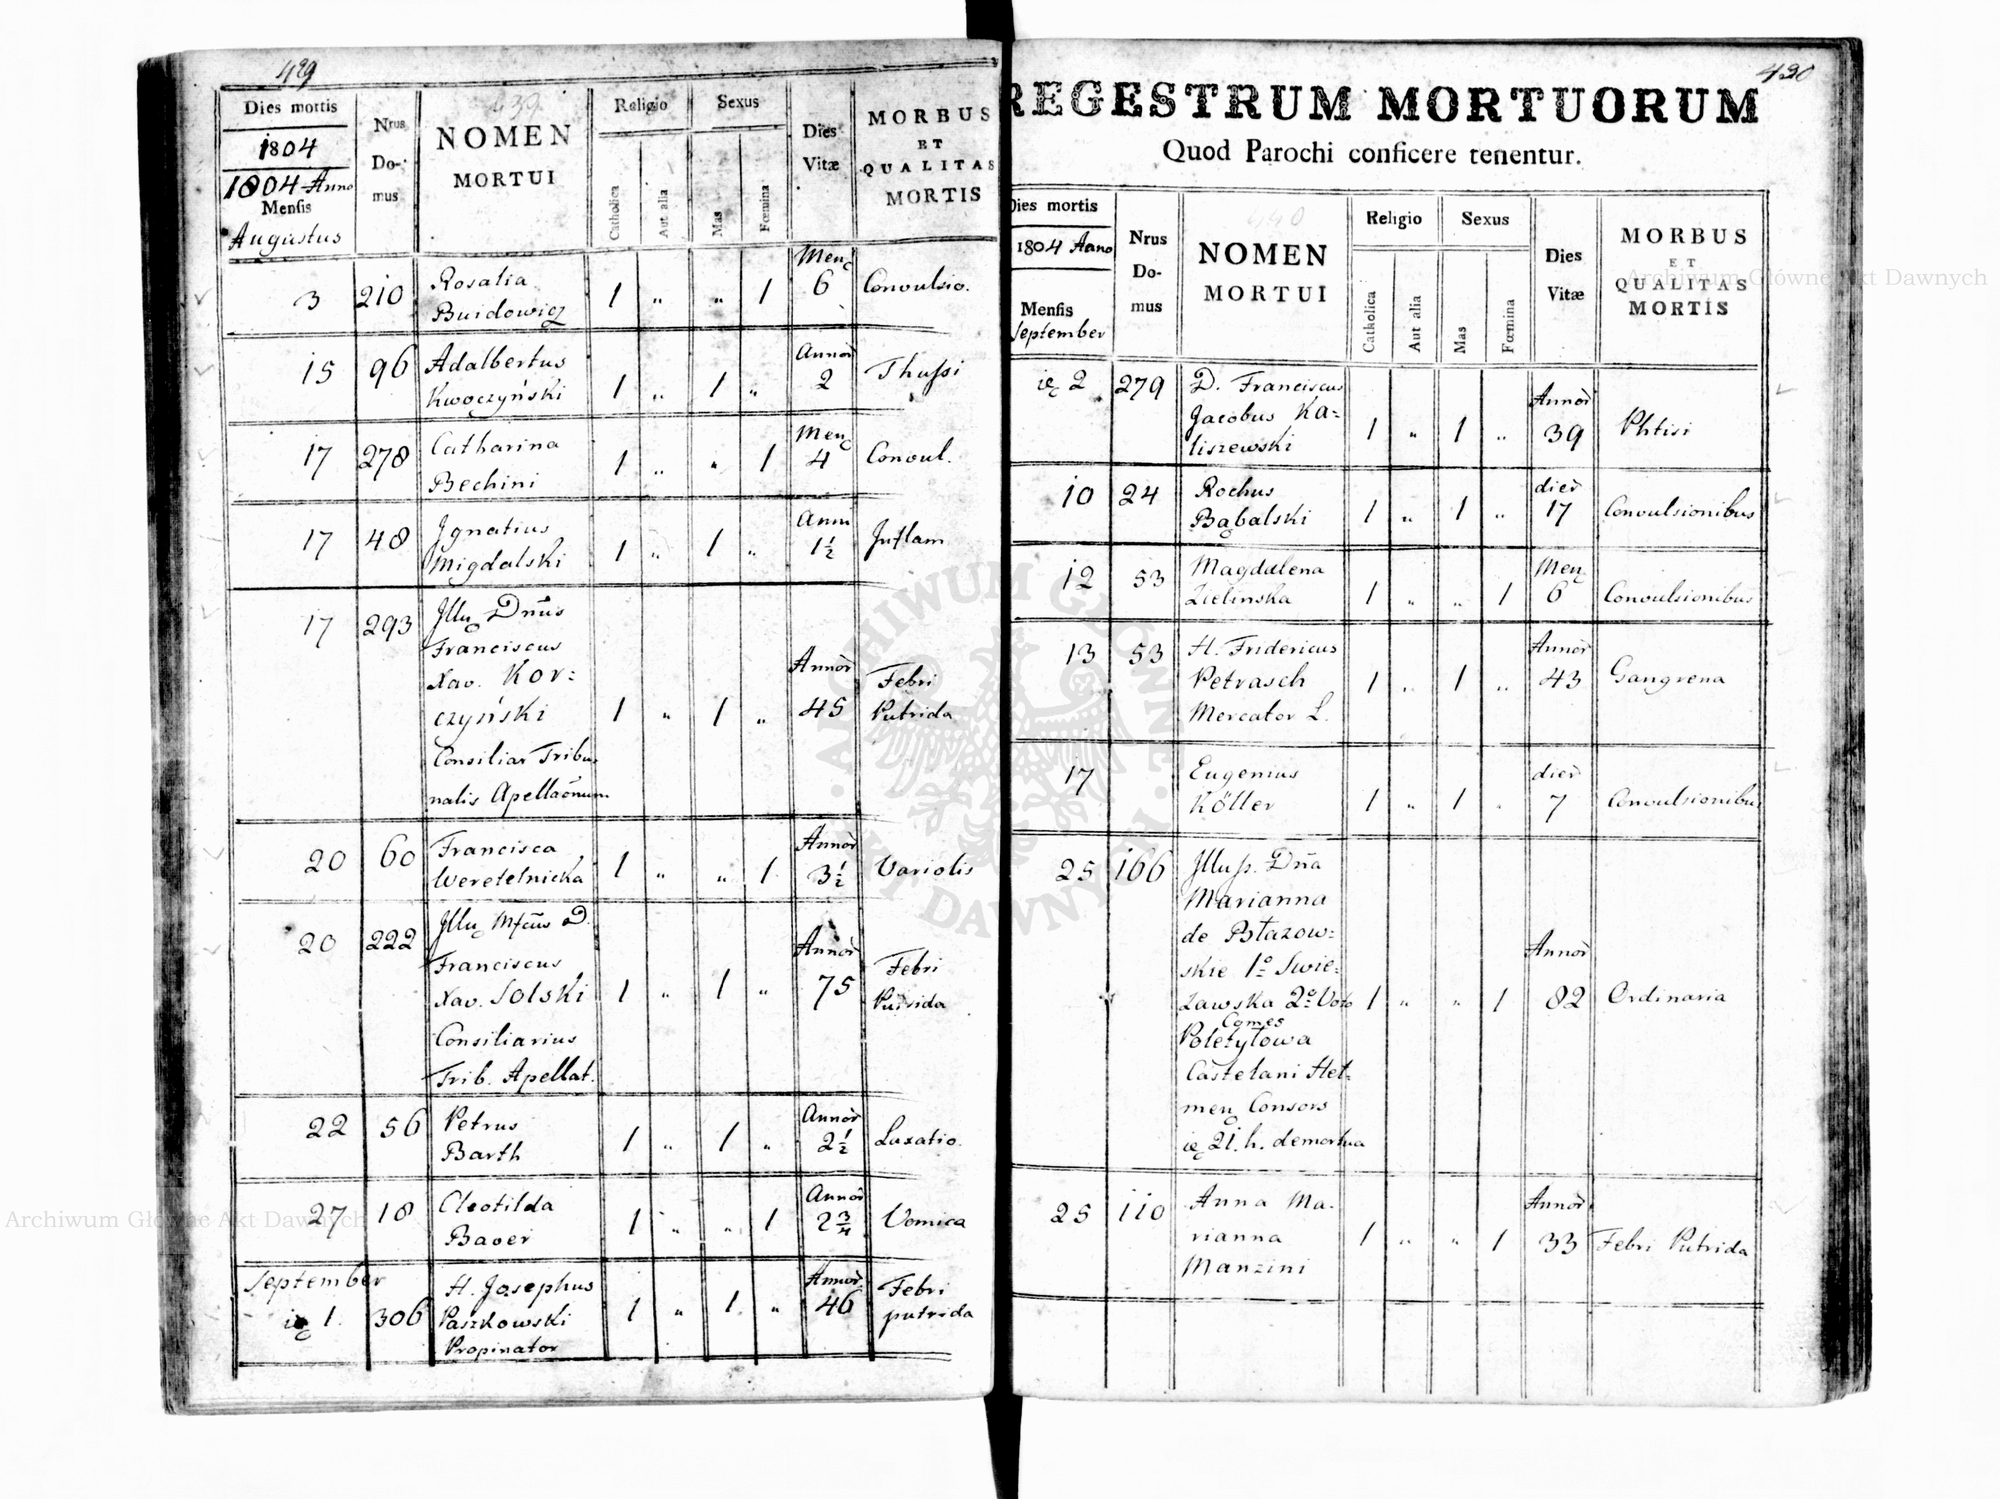 429
439
Dies mortis
1804
1804 Anno
Mensis
Augustus
Nrus
Do-
mus
NOMEN
MORTUI
Religio
Catholica
Aut alia
Sexus
Mas
Fœmina
Dies
Vitæ
MORBUS
ET
QUALITAS
MORTIS
3 210 Rosalia Men. Convulsio.
Buidowicz 1 „ „ 1 6
15 96 Adalbertus Annor Thussi
Kwoczyński 1 „ 1 „ 2
17 278 Catharina Men. Convul.
Bechini 1 „ „ 1 4
17 48 Jgnatius Annor Jnflam
Migdalski 1 „ 1 „ 1½
17 293 Jllu. Dnus
Franciscus
Xav. Kor= Annor Febri
czyński 1 „ 1 „ 45 Putrida
Consiliar Tribu
nalis Apellaonum
20 60 Francisca Annor Variolis
Weretelnicka 1 „ „ 1 3½
20 222 Jllu. Mfcus D.
Franciscus Annor Febri
Xav. Solski 1 „ 1 „ 75 Putrida
Consiliarius
Trib. Apellat.
22 56 Petrus Annor Luxatio.
Barth 1 „ 1 „ 2½
27 18 Cleotilda Annor Vomica
Baver 1 „ „ 1 2¾
September
1. 306 H. Josephus Annor Febri
Paszkowski 1 „ 1 „ 46 putrida
Propinator
430
REGESTRUM MORTUORUM
Quod Parochi conficere tenentur.
440
Dies mortis
1804 Anno
Mensis
September
Nrus
Do-
mus
NOMEN
MORTUI
Religio
Catholica
Aut alia
Sexus
Mas
Fœmina
Dies
Vitæ
MORBUS
ET
QUALITAS
MORTIS
2 279 D. Franciscus
Jacobus Ka= Annor Phtisi
liszewski 1 „ 1 „ 39
10 24 Rochus dier Convulsionibus
Bąbalski 1 „ 1 „ 17
12 53 Magdalena Men. Convulsionibus
Zielinska 1 „ „ 1 6
13 53 H. Fridericus Annor Gangrena
Petrasch 1 „ 1 „ 43
Mercator L.
17 Eugenius dier Convulsionibus
Köller 1 „ 1 „ 7
25 166 Jllus. Dña
Marianna
de Błazow=
skie 1º Swie= Annor
Zawska 2º Voto 1 „ „ 1 82 Ordinaria
Comes
Poletyłowa
Castelani Het-
men. Consors
21. h. demortua
25 110 Anna Ma- Annor
rianna 1 „ „ 1 33 Febri Putrida
Manzini
Archiwum Główne Akt Dawnych
Archiwum Główne Akt Dawnych
ARCHIWUM GŁÓWNE AKT DAWNYCH